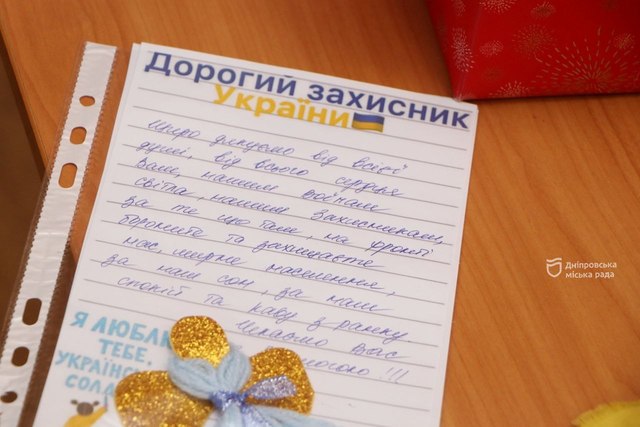 Дорогий захисник
України
Щиро дякуємо від всієї
душі, від всього сердця
Вам, нашим воїнам
світла, нашим захисникам,
за те що там, на фронті
бороните та захищаєте
нас, мирне населення,
за наш сон, за наш
спокій та каву з ранку.
Чекаємо Вас
!!!
Я ЛЮБЛЮ
ТЕБЕ,
Дніпровська
міська рада